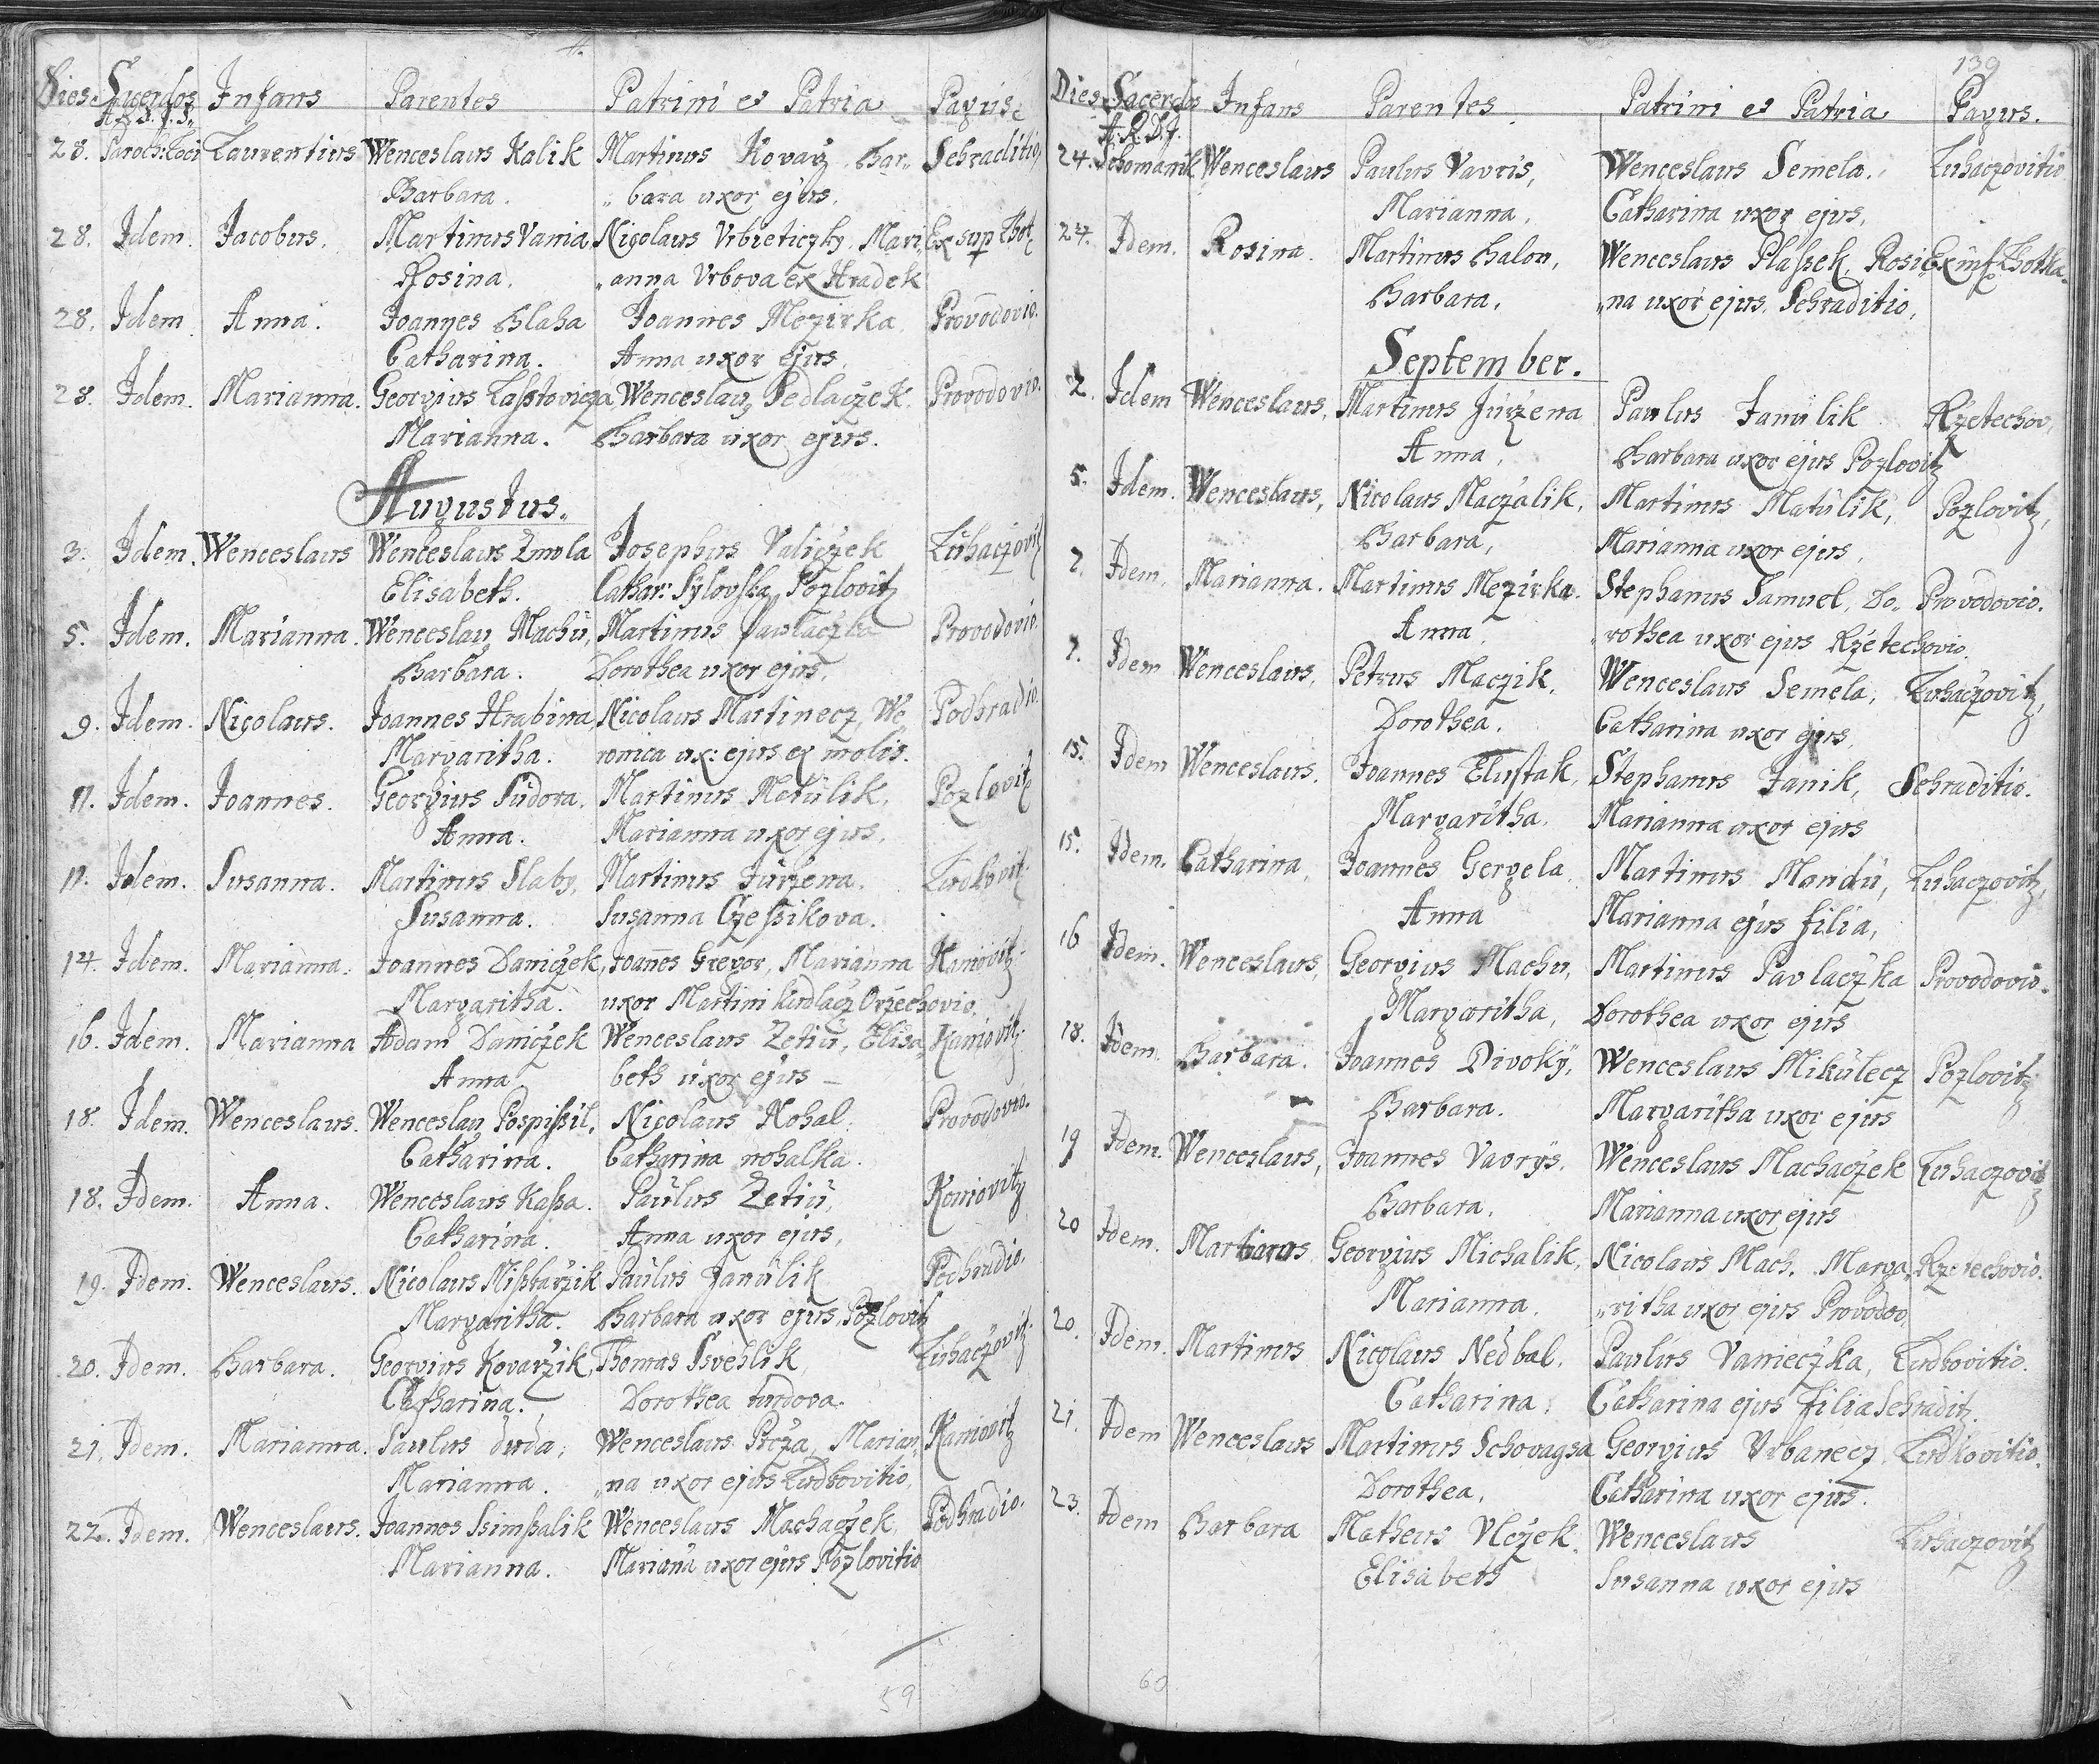 Dies. Sacerdos Infans Parentes Patrini et Patria Pagus.
28. Paroch: Loci Laurentius Wenceslaus Kalik Martinus Kovarz Bar„ Sehraditio
Barbara. „bara uxor ejus.
28. Idem. Jacobus. Martinus Vania Nicolaus Vrbieticzky, Mari Ex sup Lhot
Rosina. „anna Vrbova ex Hradek
28. Idem Anna. Joannes Blaha Joannes Mezirka Provodovio.
Catharina. Anna uxor ejus.
28. Idem. Marianna. Georgius Lasstovicza Wenceslaus Sedlaczek Provodovio.
Marianna. Barbara uxor ejus.
Augustus.
3. Idem. Wenceslaus Wenceslaus Zmola Josephus Valiczek Luhaczovitz
Elisabeth. Cathar: Sylovska Pozlovitz
5. Idem. Marianna. Wenceslaus Machu, Martinus Pavlaczka Provodovio.
Barbara. Dorothea uxor ejus.
9. Idem. Nicolaus. Joannes Hrabina, Nicolaus Martinecz, We„ Podhradio.
Margaritha. ronica ux: ejus ex molis.
11. Idem. Joannes. Georgius Sudora. Martinus Matulik, Pozlovitz
Anna. Marianna uxor ejus.
11. Idem. Susanna. Martinus Slaby, Martinus Jurzena. Ludkovit.
Susanna. Susanna Czessikova.
14. Idem. Marianna. Joannes Daniczek, Joanes Gregor, Marianna Kaniovitz.
Margaritha. uxor Martini Kudlacz Orzechovio.
16. Idem. Marianna Adam Daniczek Wenceslaus Zetiu, Elisa„ Kaniovitz.
Anna beth uxor ejus
18. Idem. Wenceslaus. Wenceslau Pospissil, Nicolaus Nohal. Provodovio.
Catharina. Catharina nohalka.
18. Idem. Anna. Wenceslaus Kassa. Paulus Zetiu, Koniovitz
Catharina. Anna uxor ejus,
19. Idem. Wenceslaus. Nicolaus Misskarzik Paulus Janulik Podhradio.
Margaritha. Barbara uxor ejus, Pozlovitz
20. Idem. Barbara. Georgius Kovarzik, Thomas Ssvehlik, Luhaczovitz.
Catharina. Dorothea furdova.
21. Idem. Marianna. Paulus duda, Wenceslaus Procza, Marian„ Kaniovitz
Marianna. „na uxor ejus Ludkovitio,
22. Idem. Wenceslaus. Joannes Ssimssalik Wenceslaus Machaczek, Podhradio.
Marianna. Mariana uxor ejus Pozlovitio
59
139
Dies Sacerdos Infans Parentes Patrini et Patria Pagus.
A. R. D. J.
24. Wenceslaus Paulus Vavris, Wenceslaus Semela. Luhaczovitio
Marianna, Catharina uxor ejus,
24. Idem. Rosina. Martinus Balon, Wenceslaus Plassek, Rosi„ Ex inf Lhotka.
Barbara, „na uxor ejus, Sehraditio,
September.
2. Idem Wenceslaus, Martinus Jurzena Paulus Janulik Rzetechov,
Anna, Barbara uxor ejus Pozlovitz
5. Idem. Wenceslaus, Nicolaus Maczalik, Martinus Matulik, Pozlovitz,
Barbara, Marianna uxor ejus,
7. Idem. Marianna. Martinus Mezirka. Stephanus Samuel, Do„ Provodovio.
Anna „rothea uxor ejus Rzetechovio.
7. Idem Wenceslaus, Petrus Maczik, Wenceslaus Semela, Luhaczovitz,
Dorothea. Catharina uxor ejus,
15. Idem Wenceslaus. Joannes Elustak, Stephanus Janik, Sehraditio.
Margaritha. Marianna uxor ejus
15. Idem. Catharina, Joannes Gergela Martinus Mandu, Luhaczovitz,
Anna Marianna ejus filia,
16 Idem. Wenceslaus, Georgius Machu, Martinus Pavlaczka Provodovio.
Margaritha, Dorothea uxor ejus
18. Idem. Barbara. Joannes Divoky, Wenceslaus Mikulecz Pozlovitz
Barbara. Margaritha uxor ejus
19 Idem. Wenceslaus, Joannes Vavrys. Wenceslaus Machaczek Luhaczovitz
Barbara. Marianna uxor ejus
20 Idem. Georgius Michalik, Nicolaus Mach, Marga„ Rzetechovio.
Marianna. „ritha uxor ejus Provodov,
20. Idem. Martinus Nicolaus Nedbal. Paulus Vanieczka, Ludkovitio.
Catharina. Catharina ejus filia Sehradit.
21. Idem Wenceslaus Martinus Schovagsa Georgius Vrbanecz, Ludkovitio.
Dorothea, Catharina uxor ejus.
23. Idem Barbara Matheus Vlczek. Wenceslaus Luhaczovitz
Elisabeth Susanna uxor ejus
60